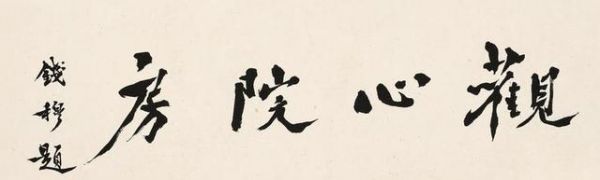 觀心院房
錢穆題